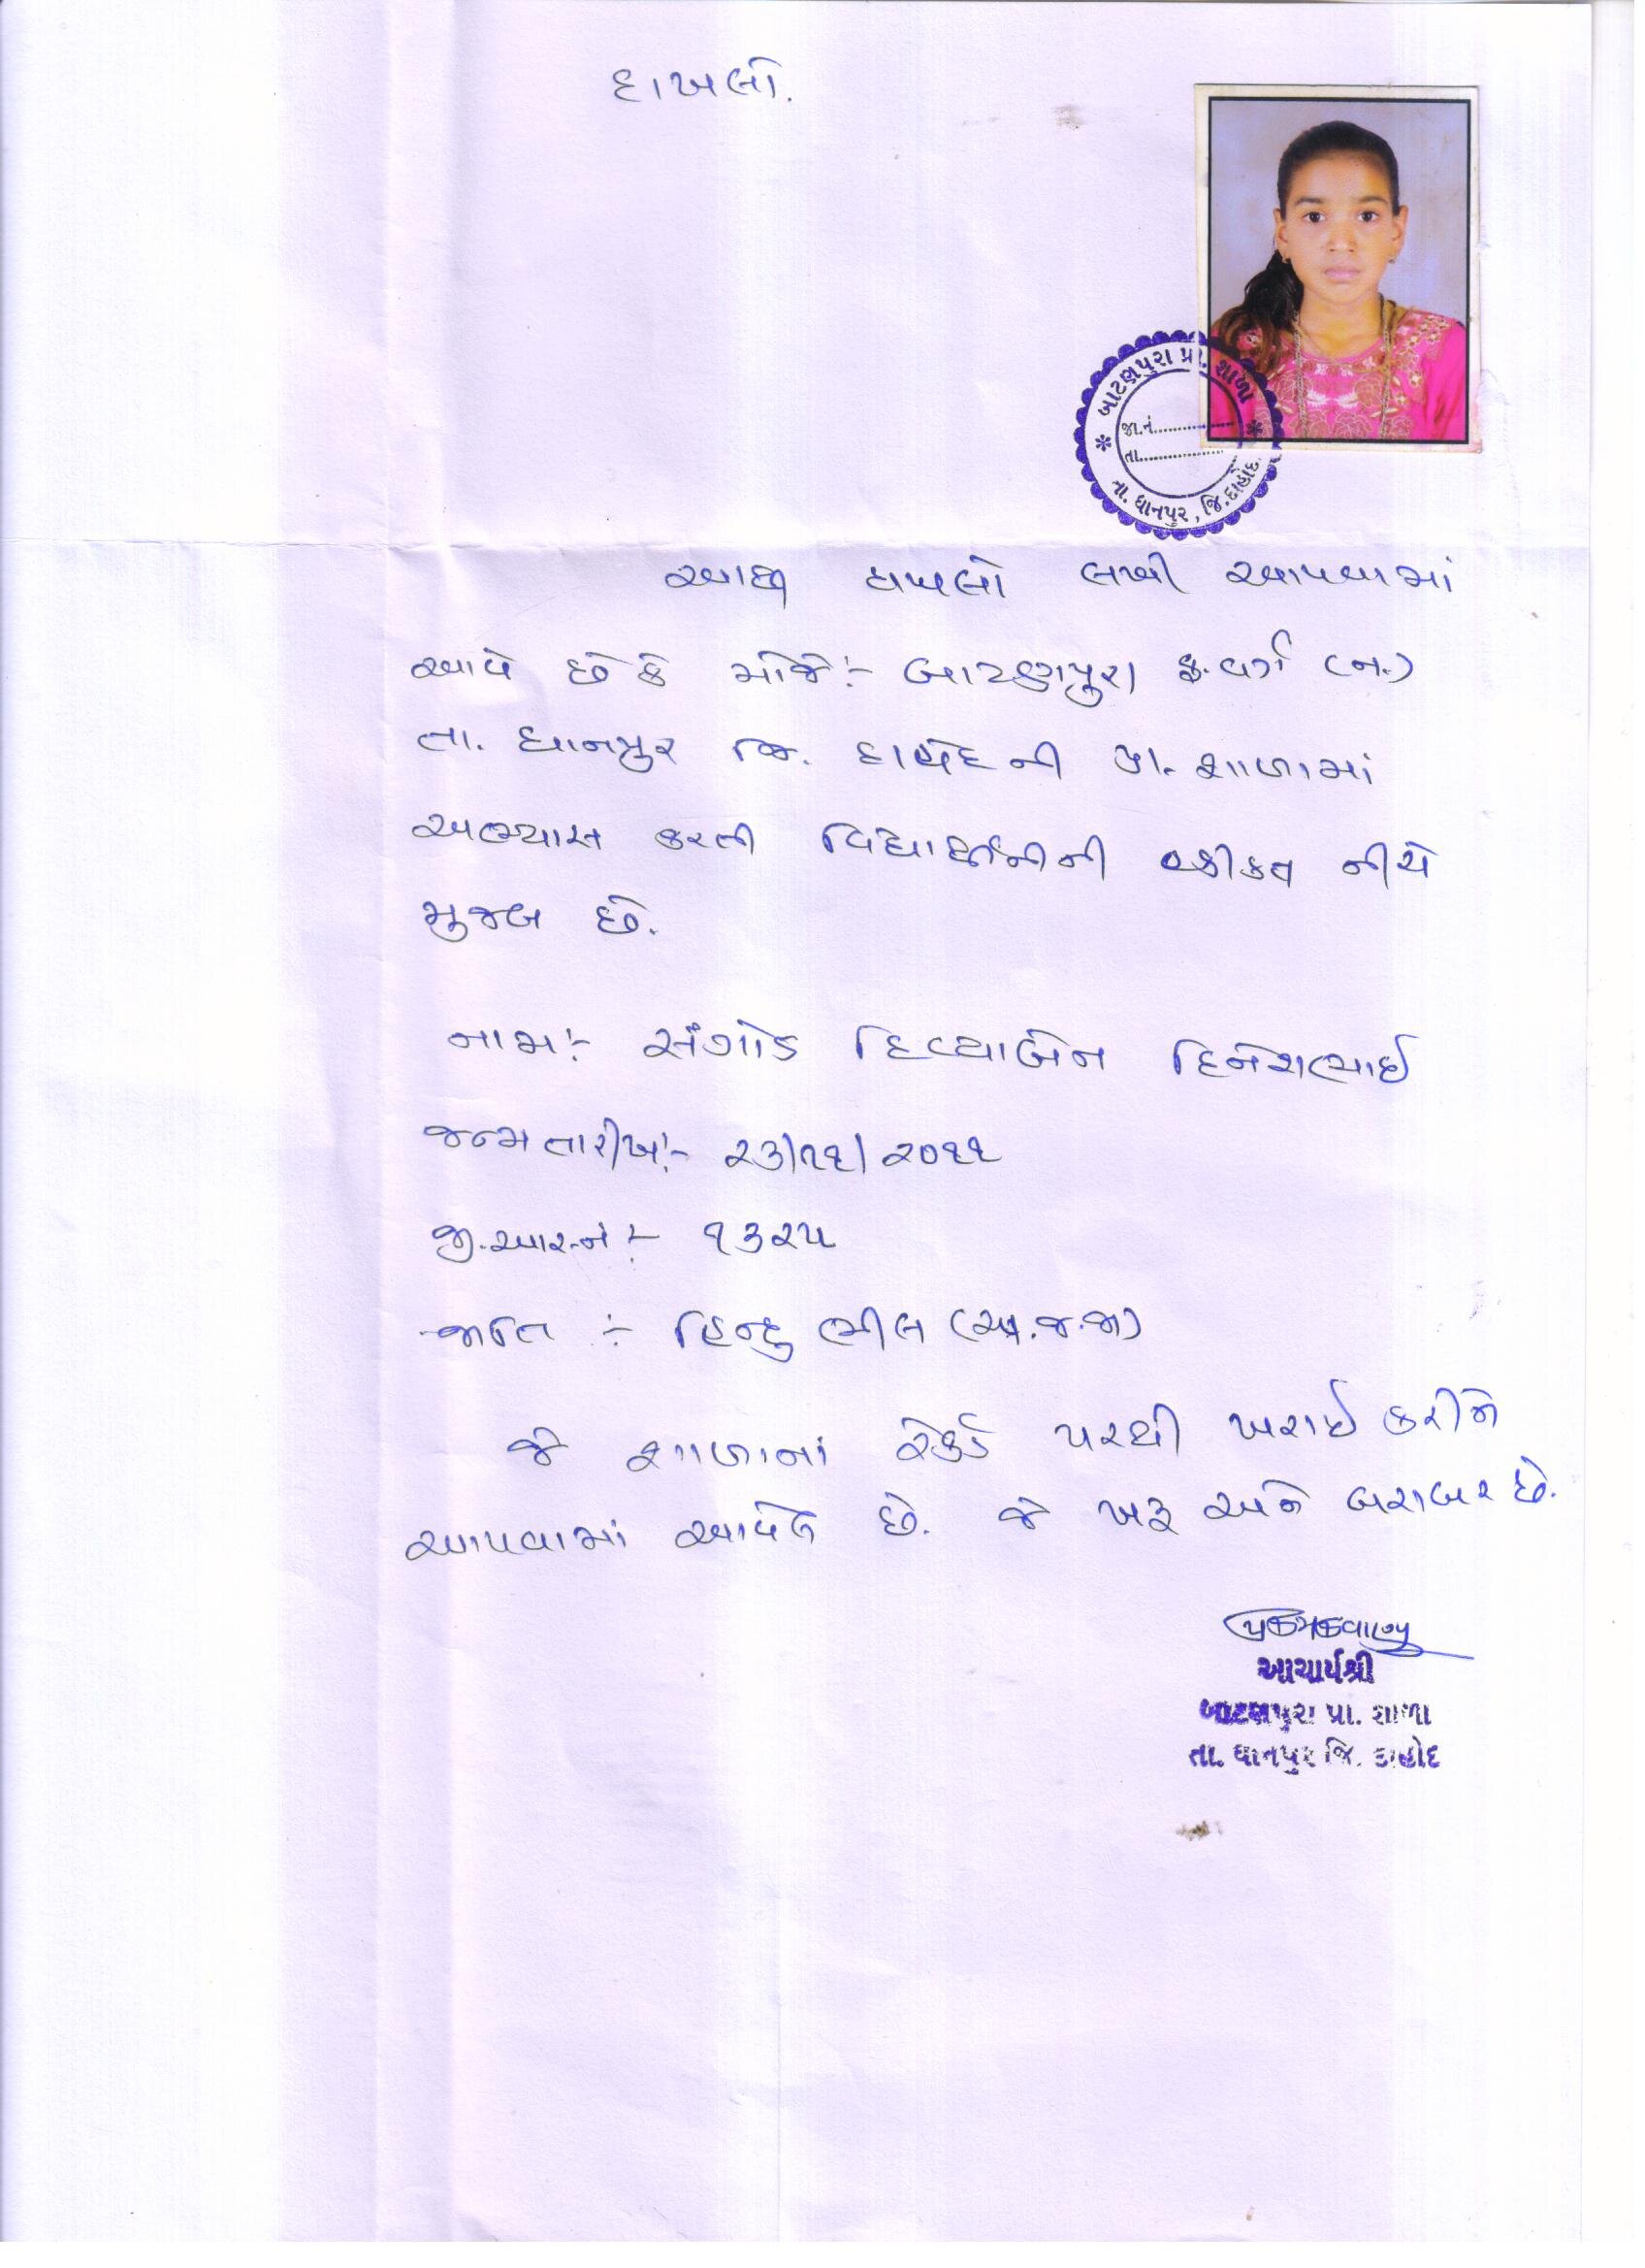 દાખલો.
બાટણપુરા પ્રા. શાળા
જા.નં.............
તા.............
તા. ધાનપુર, જિ. દાહોદ.
આથી દાખલો લખી આપવામાં
આવે છે કે મોજે:- બાટણપુરા ફ. વર્ગ (ન.)
તા. ધાનપુર જિ. દાહોદ ની પ્રા. શાળામાં
અભ્યાસ કરતી વિદ્યાર્થીનીની હકીકત નીચે
મુજબ છે.
નામ:- સંગોડ દિવ્યાબેન દિનેશભાઈ
જન્મ તારીખ:- ૨૩/૧૧/૨૦૧૧
જી.આર.નં:- ૧૩૨૫
જાતિ :- હિન્દુ ભીલ (અ.જ.જા)
જે શાળાનાં રેકર્ડ પરથી ખરાઈ કરીને
આપવામાં આવેલ છે. જે ખરૂ અને બરાબર છે.
આચાર્યશ્રી
બાટણપુરા પ્રા. શાળા
તા. ધાનપુર જિ. દાહોદ